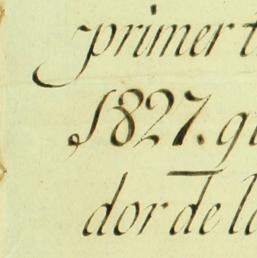 primer t
1827. qu
dor de la